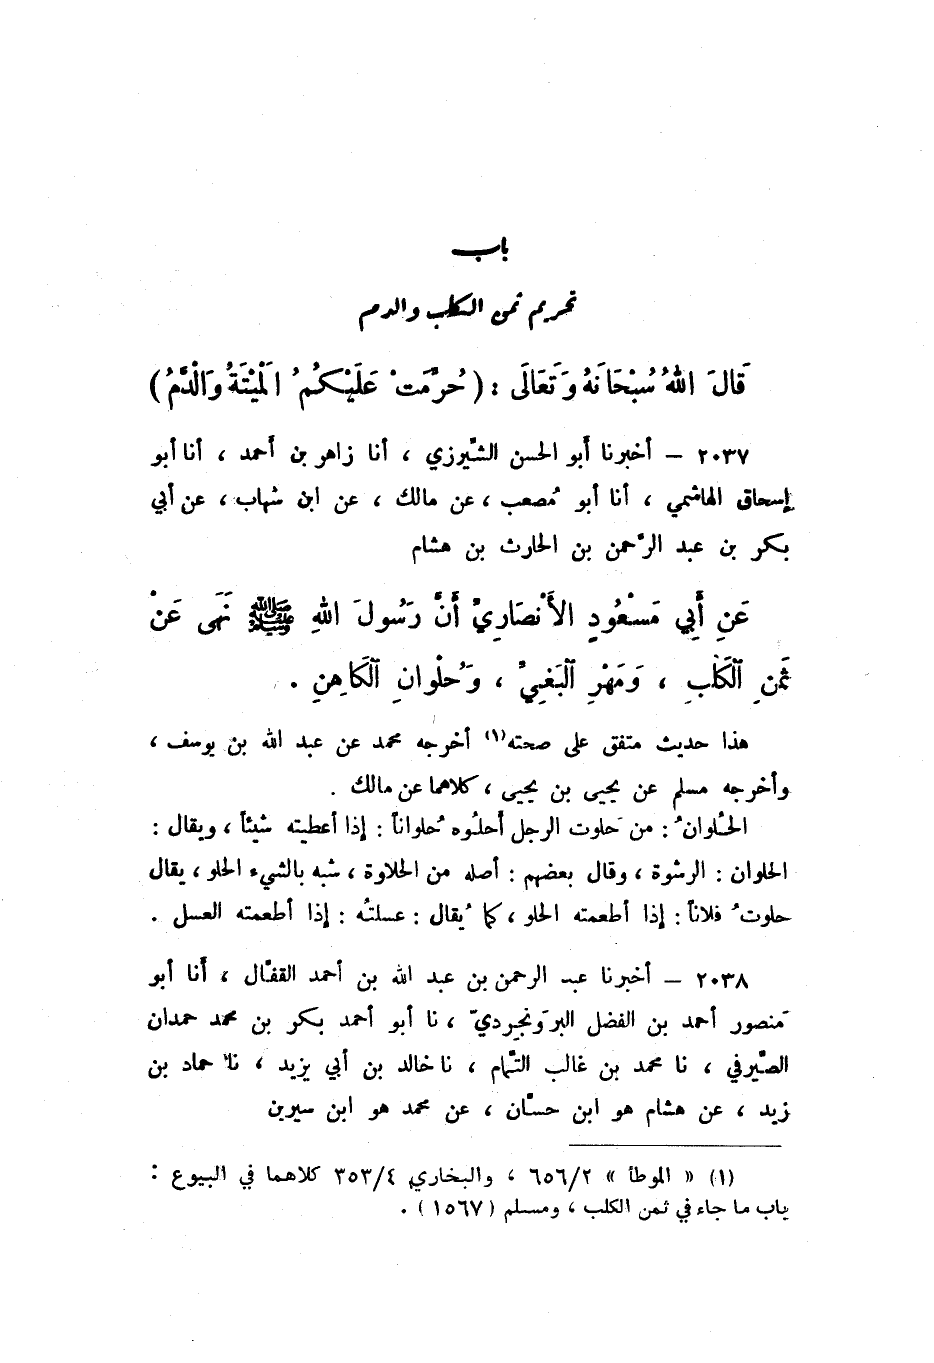 باب
تحريم ثمن الكلب والدم
قَالَ اللهُ سُبْحَانَهُ وَتَعَالَى : ( حُرِّمَتْ عَلَيْكُمُ المَيْتَةُ وَالدَّمُ )
٢٠٣٧ – أخبرنا أبو الحسن الشّيرزي ، أنا زاهر بن أحمد ، أنا أبو
إسحاق الهاشمي ، أنا أبو مُصعب ، عن مالك ، عن ابن شهاب ، عن أبي
بكر بن عبد الرّحمن بن الحارث بن هشام
عَنِ أَبِي مَسْعُودٍ الأَنْصَارِيِّ أَنَّ رَسُولَ اللهِ ﷺ نَهَى عَنْ
ثَمَنِ الْكَلْبِ ، وَمَهْرِ الْبَغِيِّ ، وَحُلْوَانِ الْكَاهِنِ .
هذا حديث متفق على صحته(١) أخرجه محمد عن عبد الله بن يوسف ،
وأخرجه مسلم عن يحيى بن يحيى ، كلاهما عن مالك .
الحُلوانُ : من حَلوت الرجل أحلُوه حُلواناً : إذا أعطيته شيئاً ، ويقال :
الحلوان : الرشوة ، وقال بعضهم : أصله من الحلاوة ، شبه بالشيء الحلو ، يقال
حلوتُ فلاناً : إذا أطعمته الحلو ، كما يُقال : عسلتُه : إذا أطعمته العسل .
٢٠٣٨ – أخبرنا عبد الرحمن بن عبد الله بن أحمد القفّال ، أَنا أبو
منصور أحمد بن الفضل البرَونجِردي ، نا أبو أحمد بكر بن محمد حمدان
الصّيرفي ، نا محمد بن غالب التّمام ، نا خالد بن أبي يزيد ، نا حماد بن
زيد ، عن هشام هو ابن حسّان ، عن محمد هو ابن سيرين
(١) « الموطأ » ٦٥٦/٢ ، والبخاري ٣٥٣/٤ كلاهما في البيوع :
باب ما جاء في ثمن الكلب ، ومسلم ( ١٥٦٧ ) .